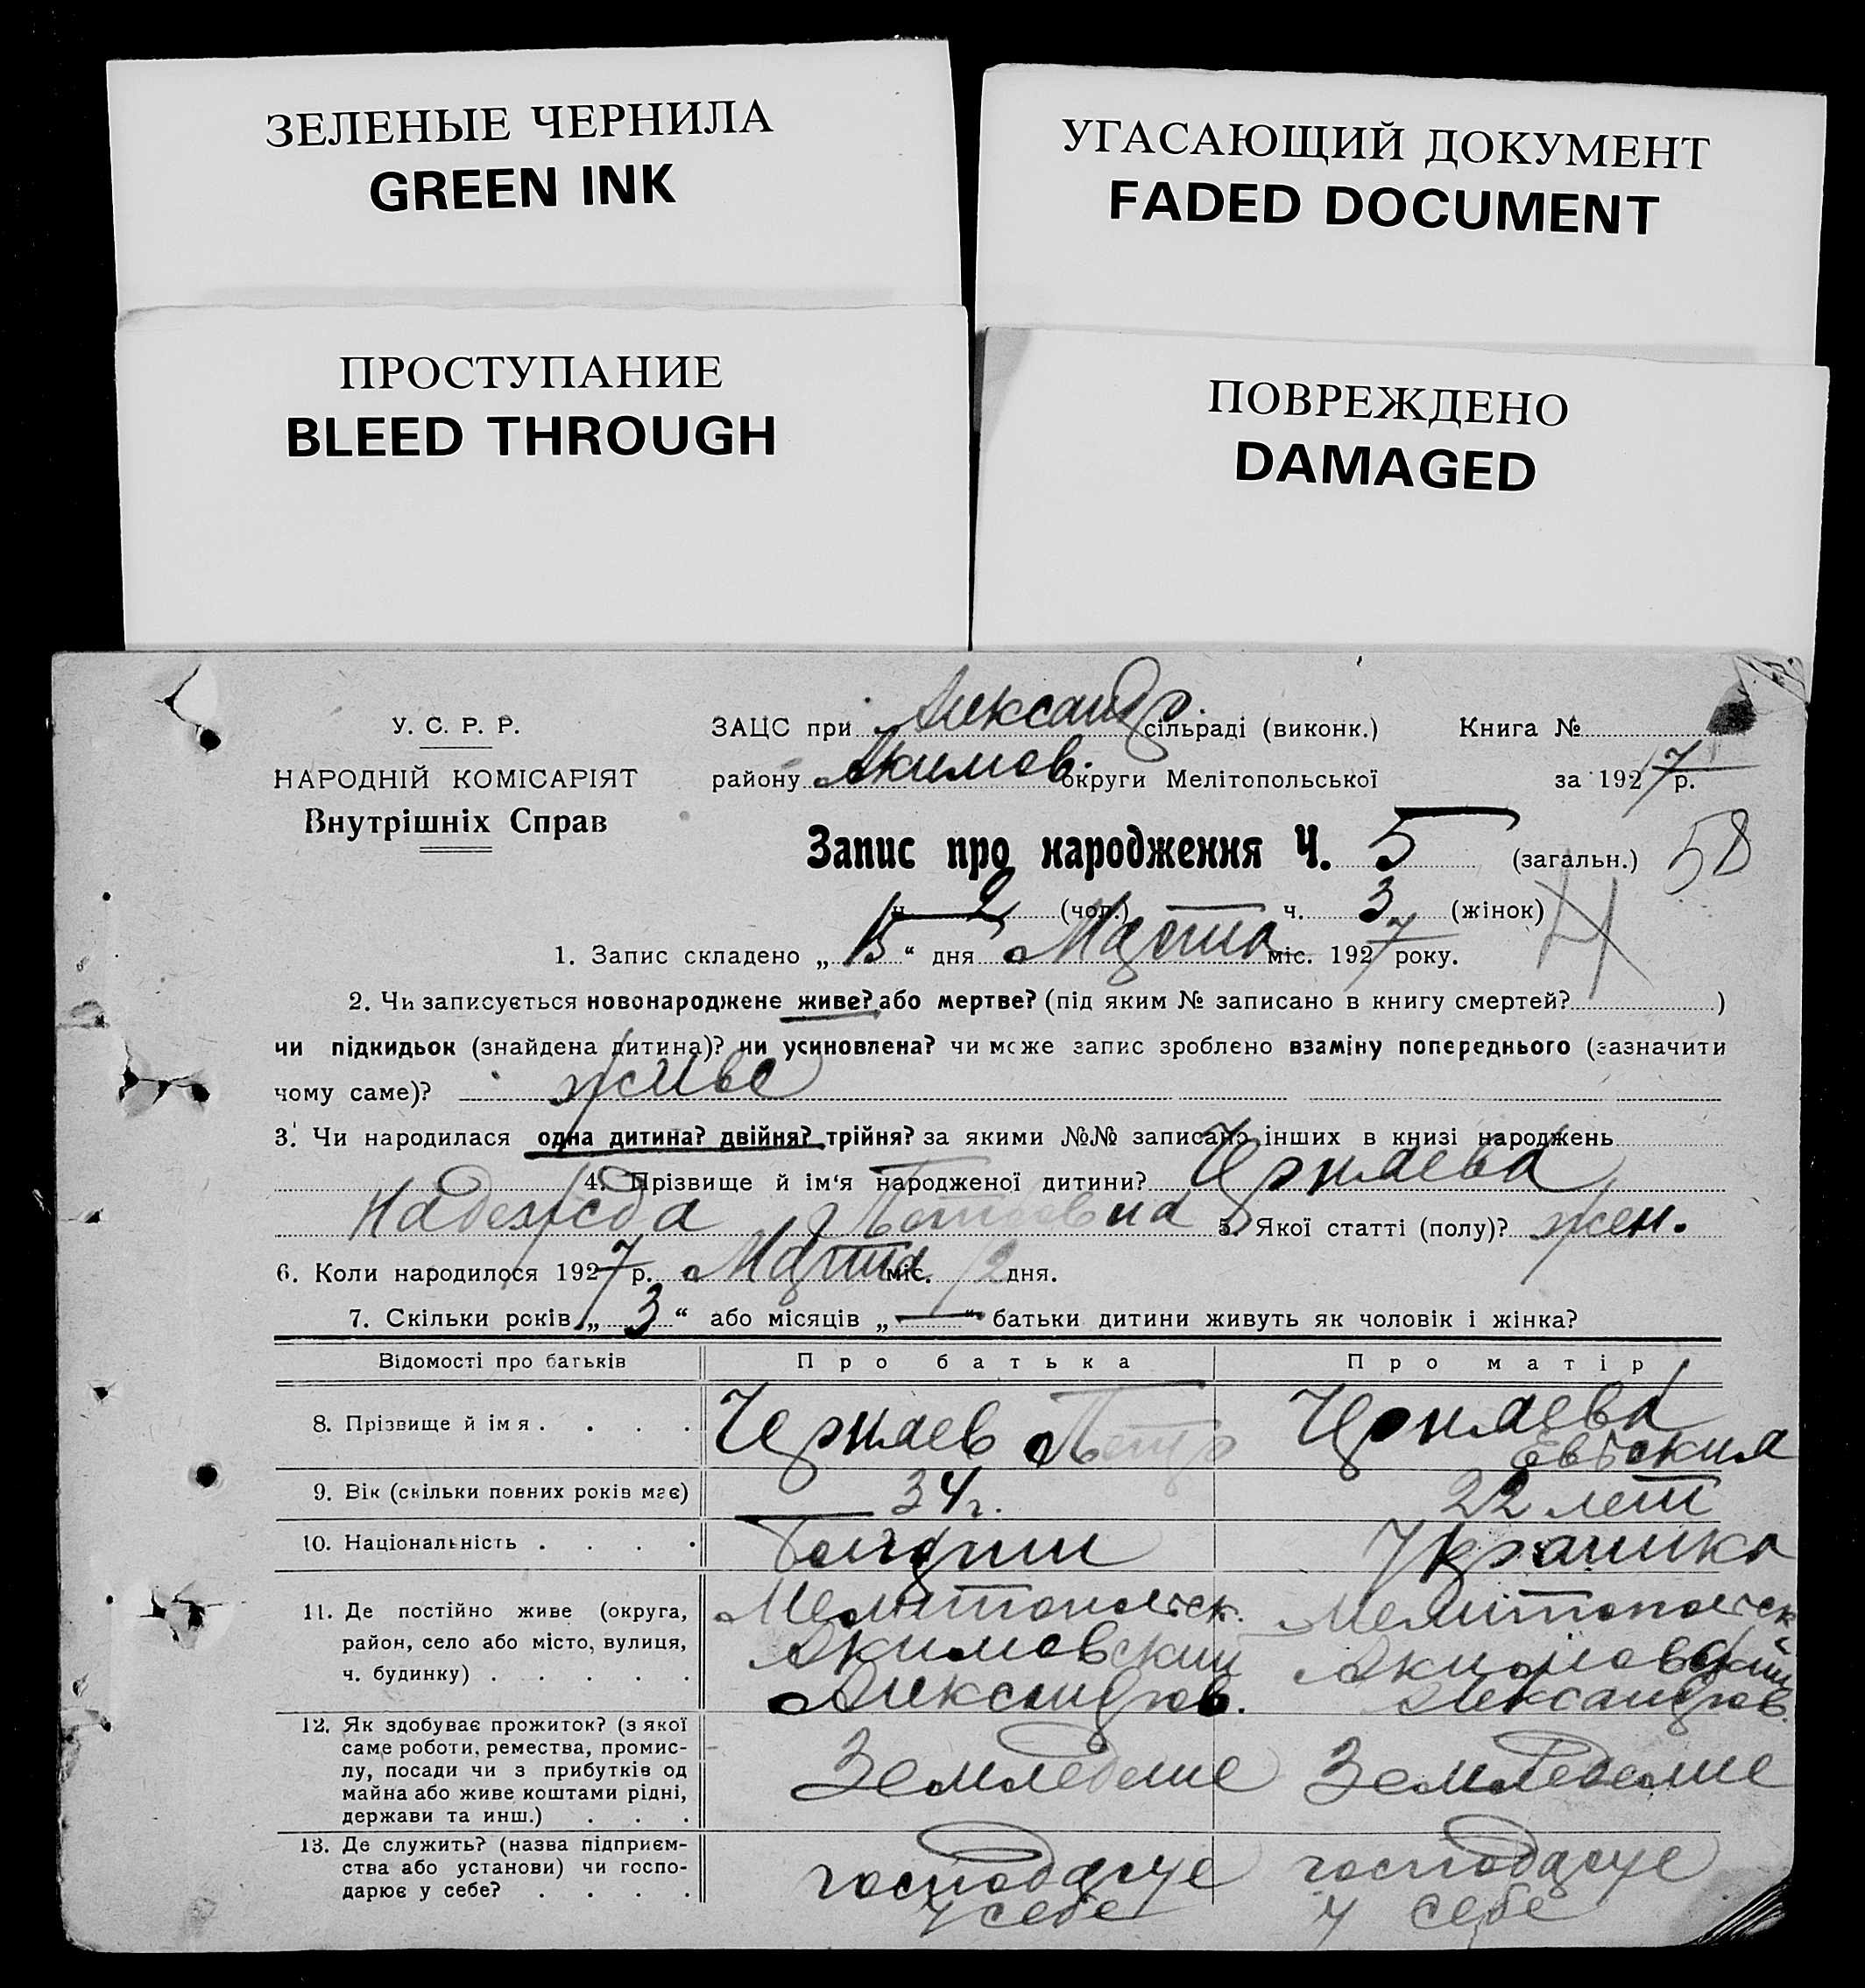 ЗЕЛЕНЫЕ ЧЕРНИЛА
GREEN INK
УГАСАЮЩИЙ ДОКУМЕНТ
FADED DOCUMENT
ПРОСТУПАНИЕ
BLEED THROUGH
ПОВРЕЖДЕНО
DAMAGED
У. С. Р. Р.
НАРОДНІЙ КОМІСАРІЯТ
Внутрішніх Справ
ЗАЦС при Александр. сільраді (виконк.) Книга №
району Акимов. округи Мелітопольської за 1927 р.
Запис про народження Ч. 5 (загальн.) 58
ч. 2 (чол.) ч. 3 (жінок)
1. Запис складено „15“ дня Марта міс. 1927 року.
2. Чи записується новонароджене живе? або мертве? (під яким № записано в книгу смертей? )
чи підкидьок (знайдена дитина)? чи усиновлена? чи може запис зроблено взаміну попереднього (зазначити
чому саме)? живе
3. Чи народилася одна дитина? двійня? трійня? за якими №№ записано інших в книзі народжень
4. Прізвище й ім‘я народженої дитини? Чернаева
Надежда Петровна 5. Якої статті (полу)? жен.
6. Коли народилося 1927 р. Марта міс. 12 дня.
7. Скільки років „ 3 “ або місяців „ — “ батьки дитини живуть як чоловік і жінка?
Відомості про батьків Про батька Про матір
8. Прізвище й ім я . . . . Чернаев Петр Чернаева
9. Вік (скільки повних років має) 34 г. 22 лет
10. Національність . . . . Болгарин Украинка
11. Де постійно живе (округа, Мелитопольск. Мелитопольск
район, село або місто, вулиця, Акимовский Акимовский
ч. будинку) . . . . . Александров. Александров.
12. Як здобуває прожиток? (з якої
саме роботи, ремества, промис-
лу, посади чи з прибутків од Земледелие Земледелие
майна або живе коштами рідні,
держави та инш.) . . .
13. Де служить? (назва підприєм-
ства або установи) чи госпо- господарує господарує
дарює у себе? . . . . у себе у себе